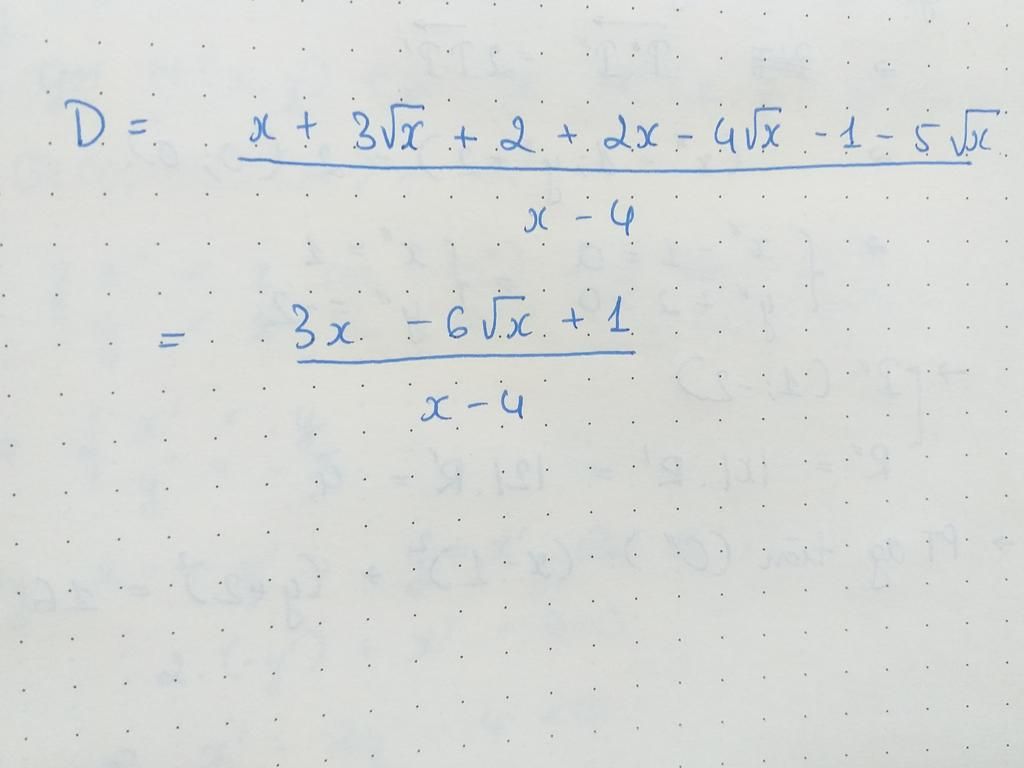 D = x + 3√x + 2 + 2x - 4√x - 1 - 5√x
x - 4
= 3x - 6√x + 1
x - 4